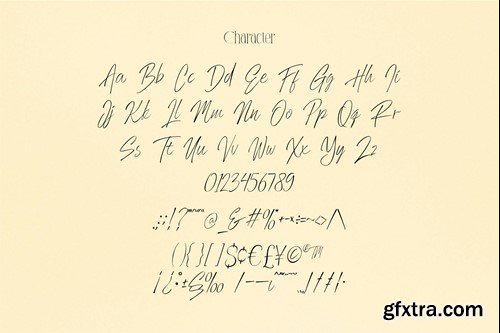 Character
Aa Bb Cc Dd Ee Ff Gg Hh Ii
Jj Kk Ll Mm Nn Oo Pp Qq Rr
Ss Tt Uu Vv Ww Xx Yy Zz
0123456789
@ & # % + - × ÷ = ~ ◇ / \
( ) { } [ ] $ ¢ € £ ¥ © ® ™
¡ ¿ • ± & ‰
gfxtra.com